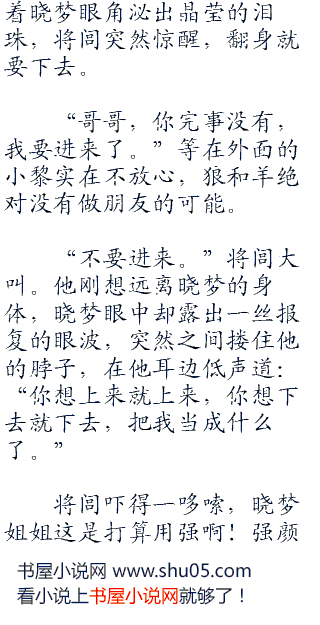 着晓梦眼角泌出晶莹的泪
珠，将闾突然惊醒，翻身就
要下去。
“哥哥，你完事没有，
我要进来了。”等在外面的
小黎实在不放心，狼和羊绝
对没有做朋友的可能。
“不要进来。”将闾大
叫。他刚想远离晓梦的身
体，晓梦眼中却露出一丝报
复的眼波，突然之间搂住他
的脖子，在他耳边低声道：
“你想上来就上来，你想下
去就下去，把我当成什么
了。”
将闾吓得一哆嗦，晓梦
姐姐这是打算用强啊！强颜
书屋小说网 www.shu05.com
看小说上书屋小说网就够了！